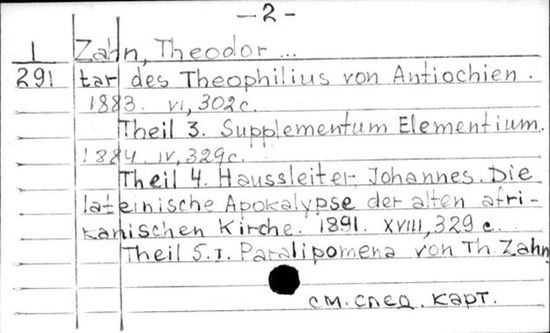 — 2 -
1 Zahn, Theodor ...
291 tar des Theophilius von Antiochien.
1883. VI, 302 с.
Theil 3. Supplementum Elementium.
1884. IV, 329 с.
Theil 4. Haussleiter Johannes. Die
lateinische Apokalypse der alten afri-
kanischen Kirche. 1891. XVIII, 329 с.
Theil 5.I. Paralipomena von Th. Zahn
см. след. карт.